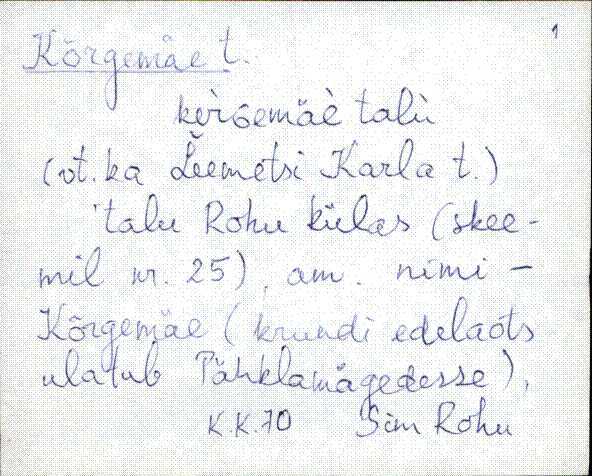 1
Kõrgemäe t.
kèrGemäè talù
(vt. ka Leemetsi Karla t.)
talu Rohu külas (skee-
mil nr. 25), am. nimi -
Kõrgemäe (krundi edelaots
ulatub Pähklamägedesse),
K.K.70 Sim Rohu